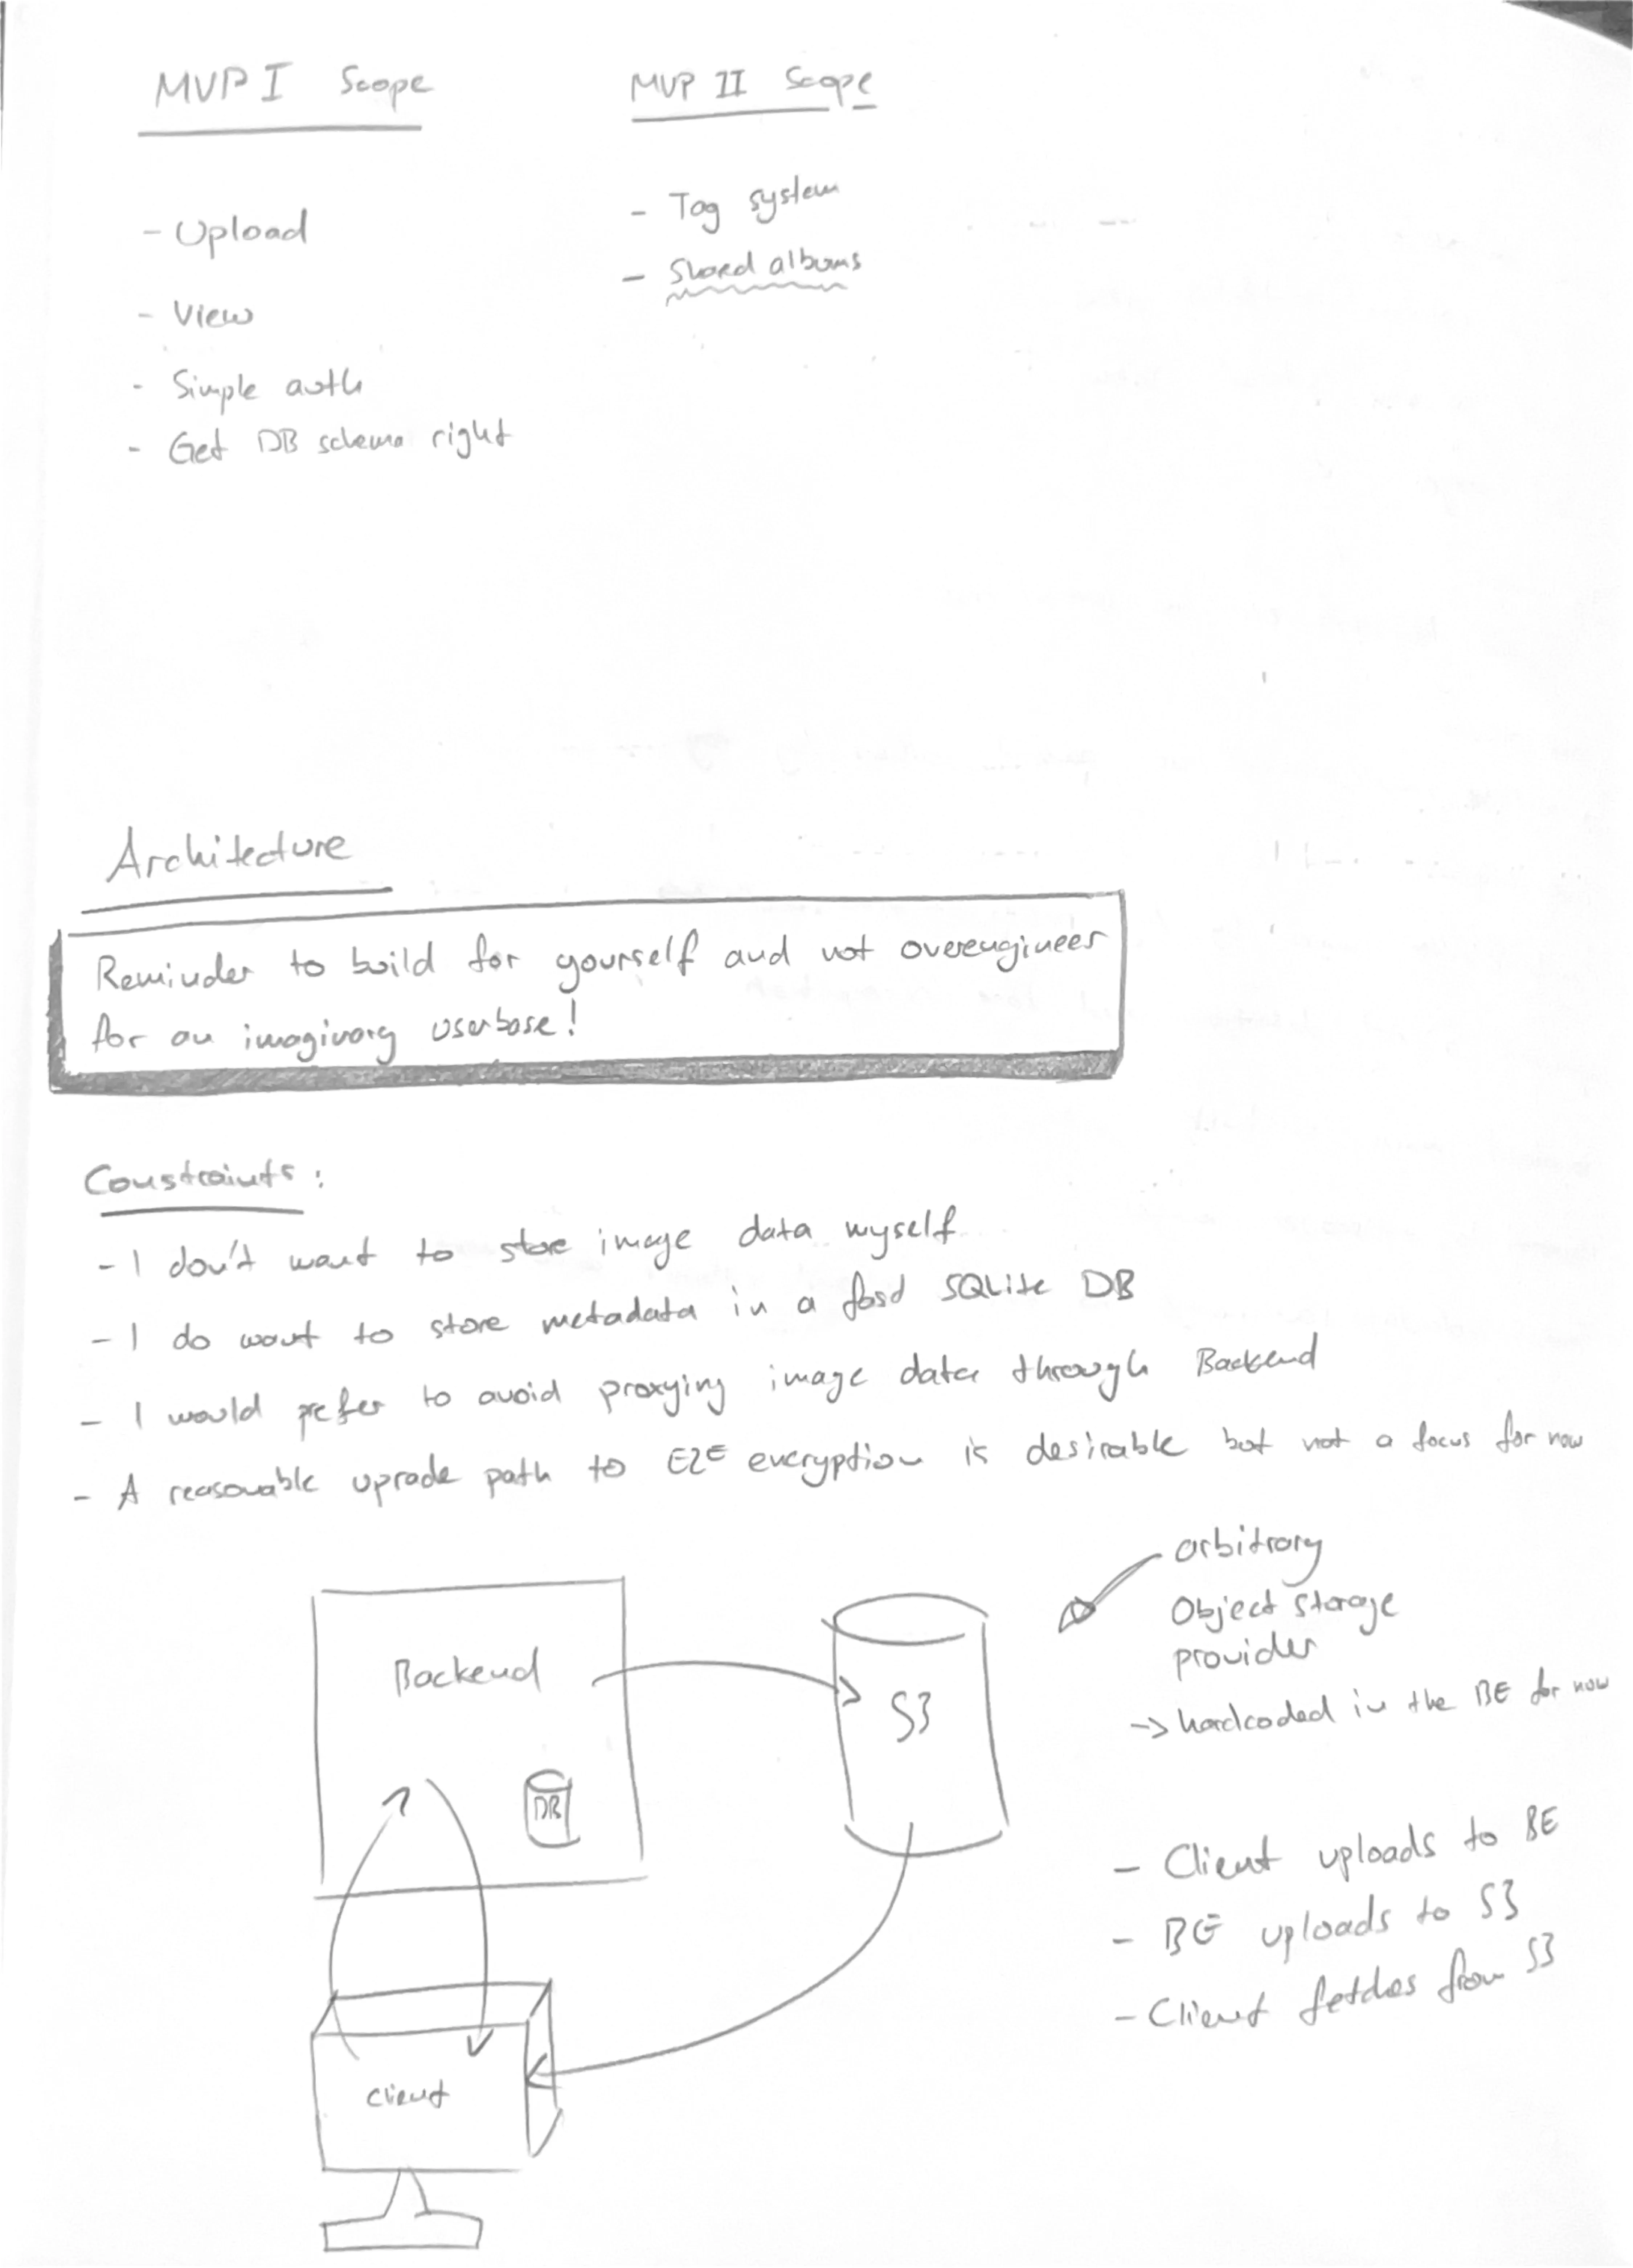 MVP I Scope
- Upload
- View
- Simple auth
- Get DB schema right
MVP II Scope
- Tag system
- Shared albums
Architecture
Reminder to build for yourself and not overengineer
for an imaginary userbase!
Constraints:
- I don't want to store image data myself
- I do want to store metadata in a fast SQLite DB
- I would prefer to avoid proxying image data through Backend
- A reasonable uprade path to E2E encryption is desirable but not a focus for now
arbitrary
Object storage
provider
-> hardcoded in the BE for now
Backend
S3
DB
- Client uploads to BE
- BE uploads to S3
- Client fetches from S3
client